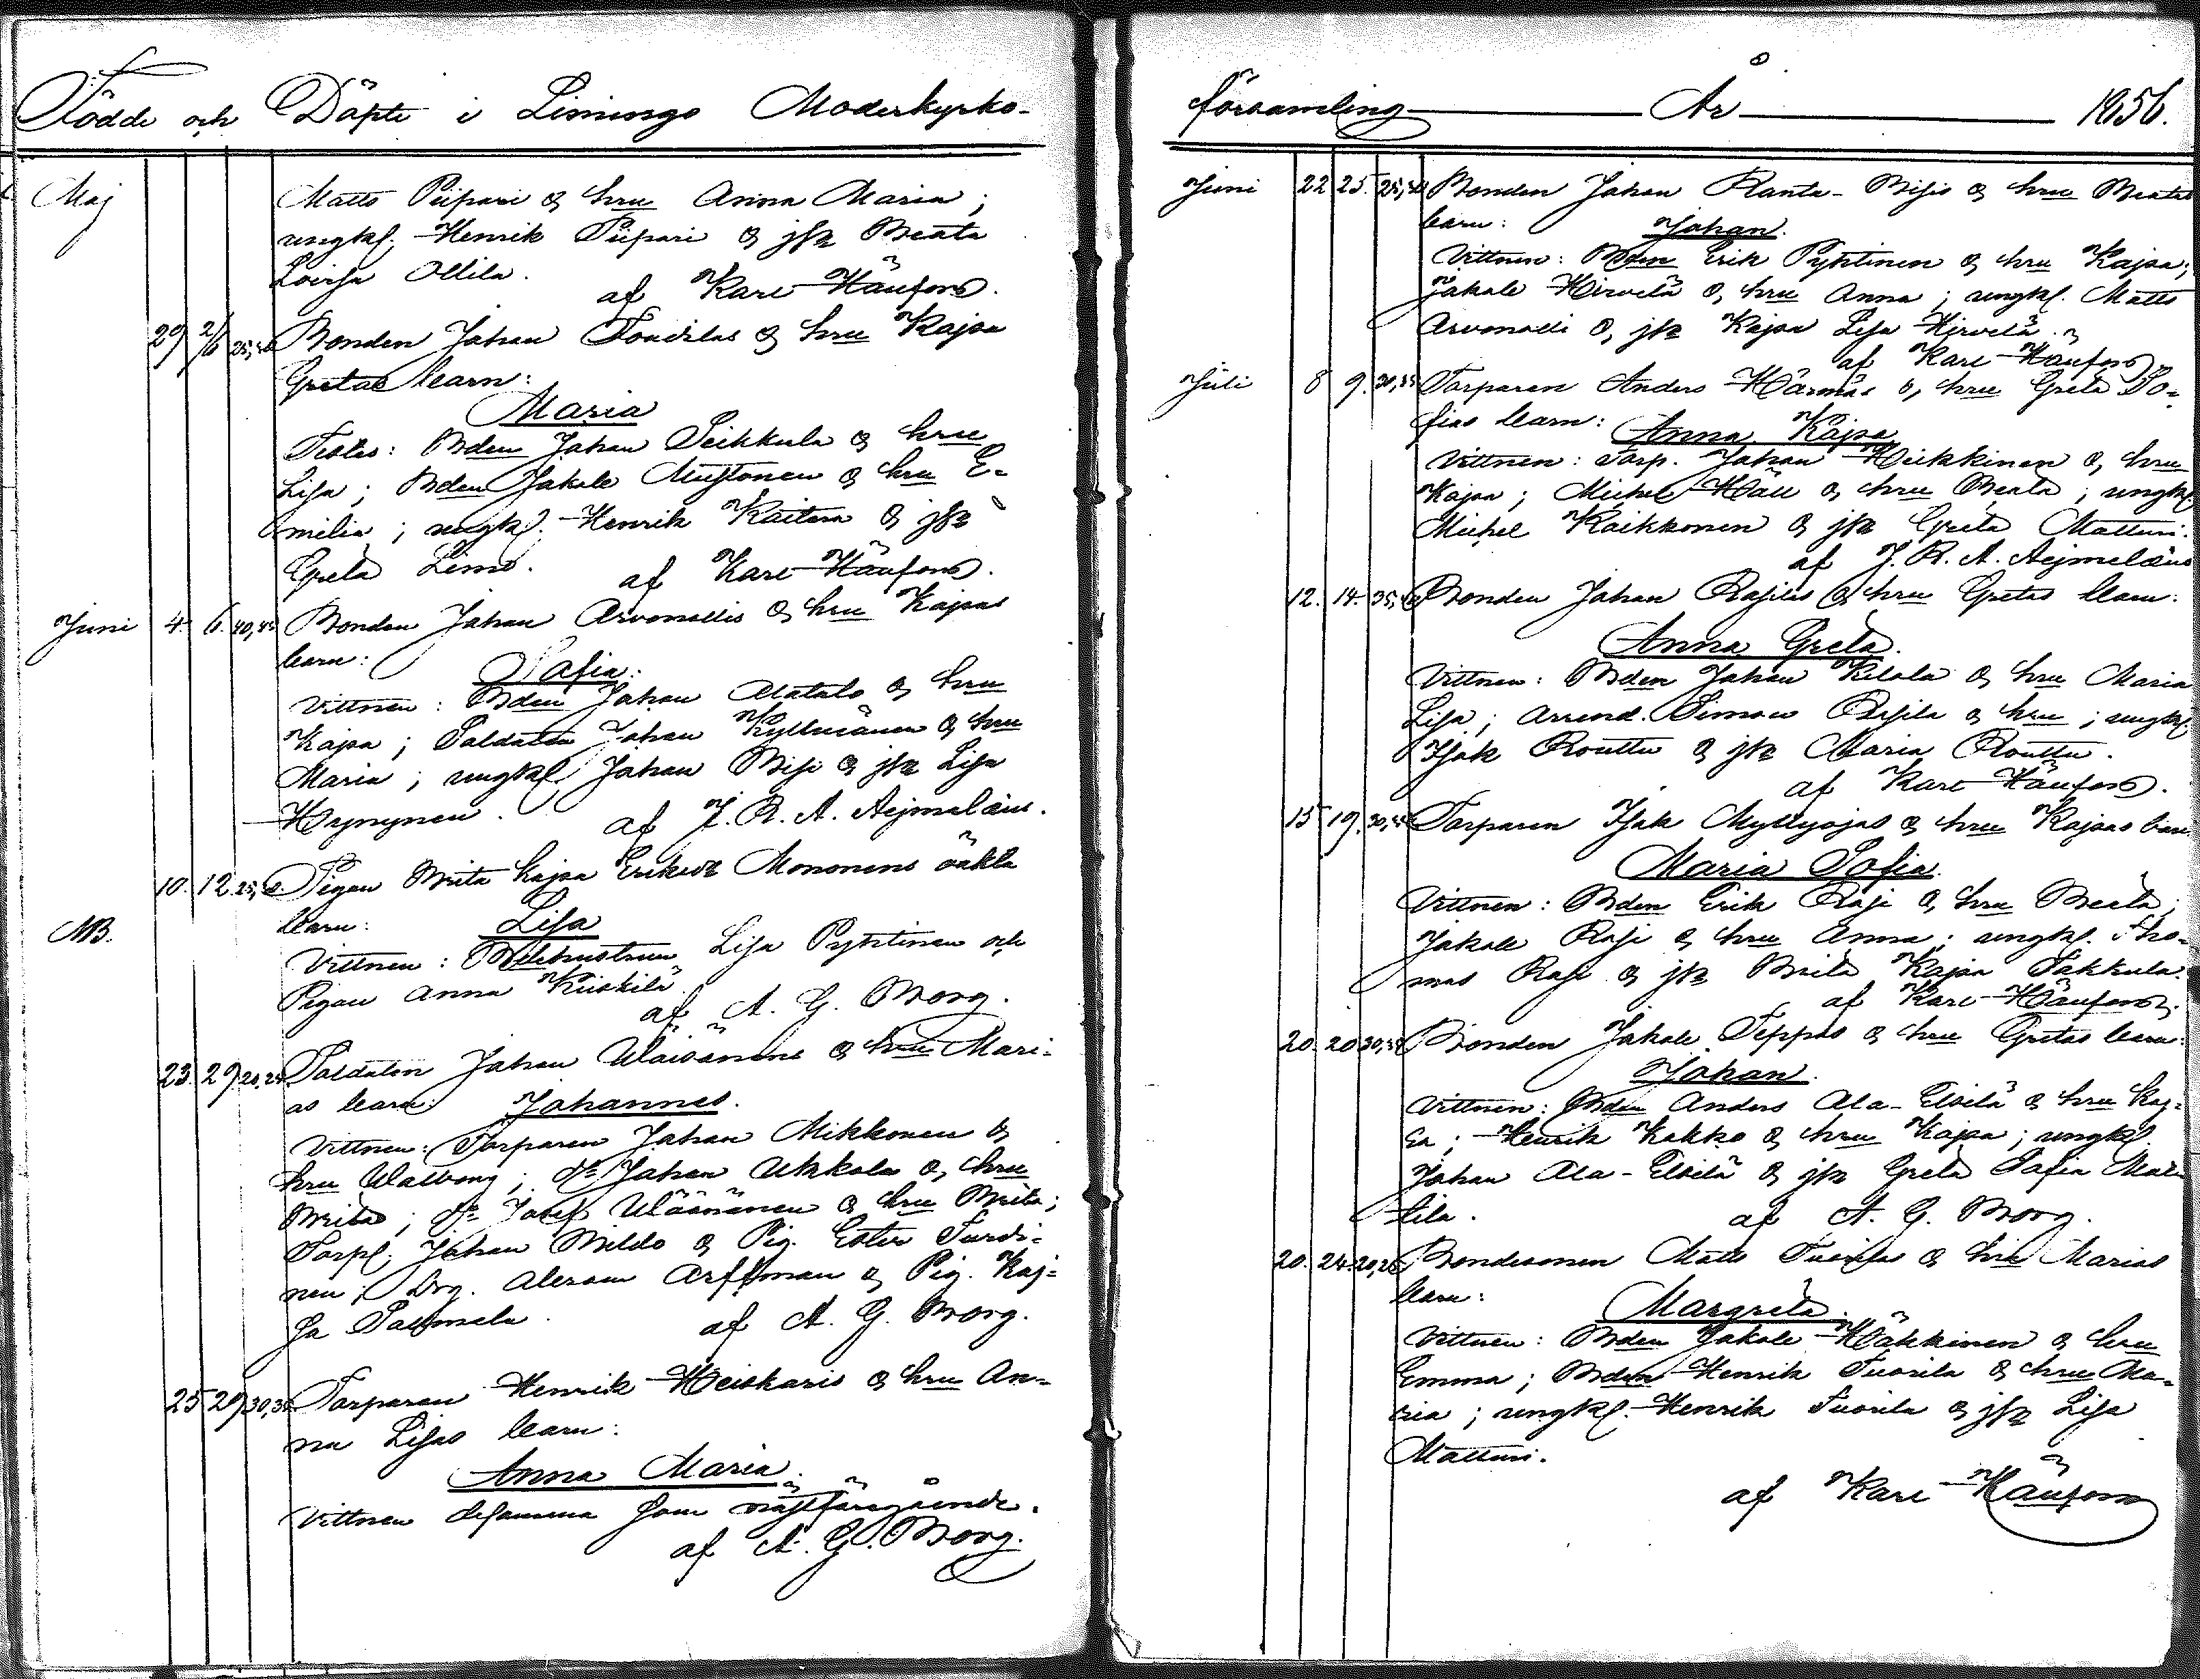 Födde och Döpte i Limingo Moderkyrko-
Maj
Matts Piipari & hru Anna Maria;
ungkl. Henrik Piipari & jfr Beata
Lovisa Ollila.
af Karl Hänfors.
29 2/6 25,30 Bonden Johan & hru Kajsa
Gretas barn:
Maria
Testes: Bden Johan Seikkula & hru
Lisa; Bden Jakob Mustonen & hru E-
milia; ungkl. Henrik Kaitera & jfr
Greta Limo.
af Karl Hänfors.
Juni 4. 6. 40,45 Bonden Johan Arvonollis & hru Kajsas
barn: Safia.
Vittnen: Bden Johan Alatalo & hru
Kajsa; Soldaten Johan & hru
Maria; ungkl. Johan Bisi & jfr Lisa
Hynynen.
af J. R. A. Aejmelæus.
10. 12. 25,30 Pigan Brita Kajsa Ericsdr Mononens oäkta
NB. barn: Lisa
Vittnen: Lisa Pyhtinen och
Pigan Anna Kiiskilä.
af A. G. Borg.
23. 29. 20,25 Soldaten Johan Wäisänens & hru Mari-
as barn: Johannes.
Vittnen: Torparen Johan Mikkonen &
hru Walborg; do Johan Ukkola &, hru
Brita; do Josef Wäänänen & hru Brita;
Torpf. Johan Bildo & Pig. Ester Turdi-
nen; Drg. Abram Arffman & Pig. Kaj-
sa
af A. G. Borg.
25 29 30,35 Torparen Henrik Heiskaris & hru An-
na Lisas barn:
Anna Maria.
Vittnen desamma som nästföregående.
af A. G. Borg.
församling År 1856.
Juni 22 25. 25,30 Bonden Johan Ranta-Bisis & hru Beatas
barn: Johan.
Vittnen: Bden Erik Pyhtinen & hru Kajsa;
Jakob Hirvelä &, hru Anna; ungkl. Matts
Arvonolli &, jfr Kajsa Lisa Hirvelä.
af Karl Hänfors
Juli 8 9. 30,35 Torparen Anders Härmäs &, hru Greta So-
fias barn: Anna Kajsa
Vittnen: Torp. Johan Heikkinen &, hru
Kajsa; Michel Häll & hru Beata; ungkl.
Michel Kaikkonen & jfr Greta Matturi.
af J. R. A. Aejmelæus
12. 14. 35,40 Bonden Johan Rajilas & hru Gretas barn:
Anna Greta.
Vittnen: Bden Johan Kilola & hru Maria
Lisa; Arrend. Simon & hru; ungkl.
Isak Routtu & jfr Maria Routtu.
af Karl Hänfors.
15 19. Torparen Isak Myllyojas & hru Kajsas barn,
Maria Sofia.
Vittnen: Bden Erik Raji &, hru Beata;
Jakob Raji & hru Anna; ungkl. Tho-
mas Raji & jfr Brita Kajsa Takkula.
af Karl Hänfors.
20. 20 Bonden Jakob Seppäs & hru Gretas barn:
Johan.
Vittnen: Bden Anders Ala-Elsilä & hru Kaj-
sa; Henrik Kakko & hru Kajsa; ungkl.
Johan Ala-Elsilä & jfr Greta Safia Mat-
tila.
af A. G. Borg.
20. 24. 20,25 Bondesonen Matts Tuorilas & hru Marias
barn: Margreta.
Vittnen: Bden Jakob Häkkinen & hru
Emma; Bden Henrik Tuorila & hru Ma-
ria; ungkl. Henrik Tuorila & jfr Lisa
Matturi.
af Karl Hänfors